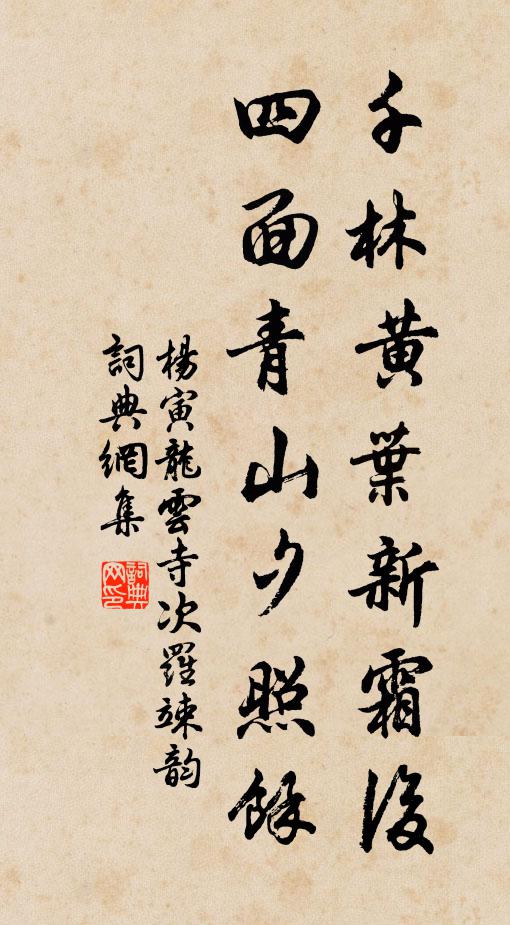 千林黃葉新霜後
四面青山夕照餘
楊寅龍雲寺次羅竦韵
詞典網集
詞典网印